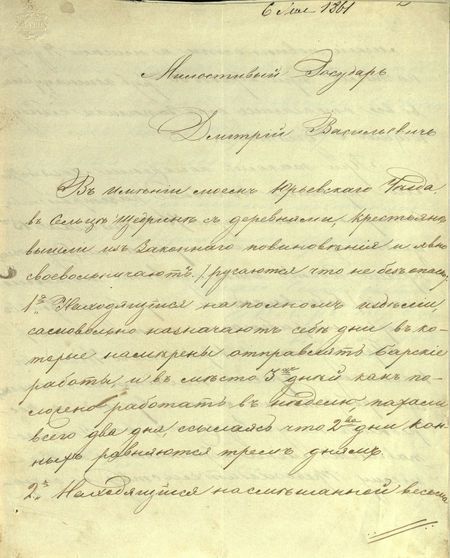 6 Мая 1861
Милостивый Государь
Дмитрій Васильевичь
Въ имѣніи моемъ Юрьевскаго уѣзда
въ Сельцѣ съ деревнями, крестьяне
вышли изъ Законнаго повиновѣнія и явно
своевольничаютъ, ругаются что не безъ опасно,
1е Находящiйся на полномъ издѣліи
самовольно назначаютъ себѣ дни въ ко-
торые намѣрены отправлять барскіе
работы, и въ мѣсто 3хъ дней какъ по-
ложено работать въ недѣлю, пахали
всего два дня, ссылаясь что 2ва дни кон-
ныхъ равняются тремъ днямъ.
2е Находящiйся на смѣшанной весьма